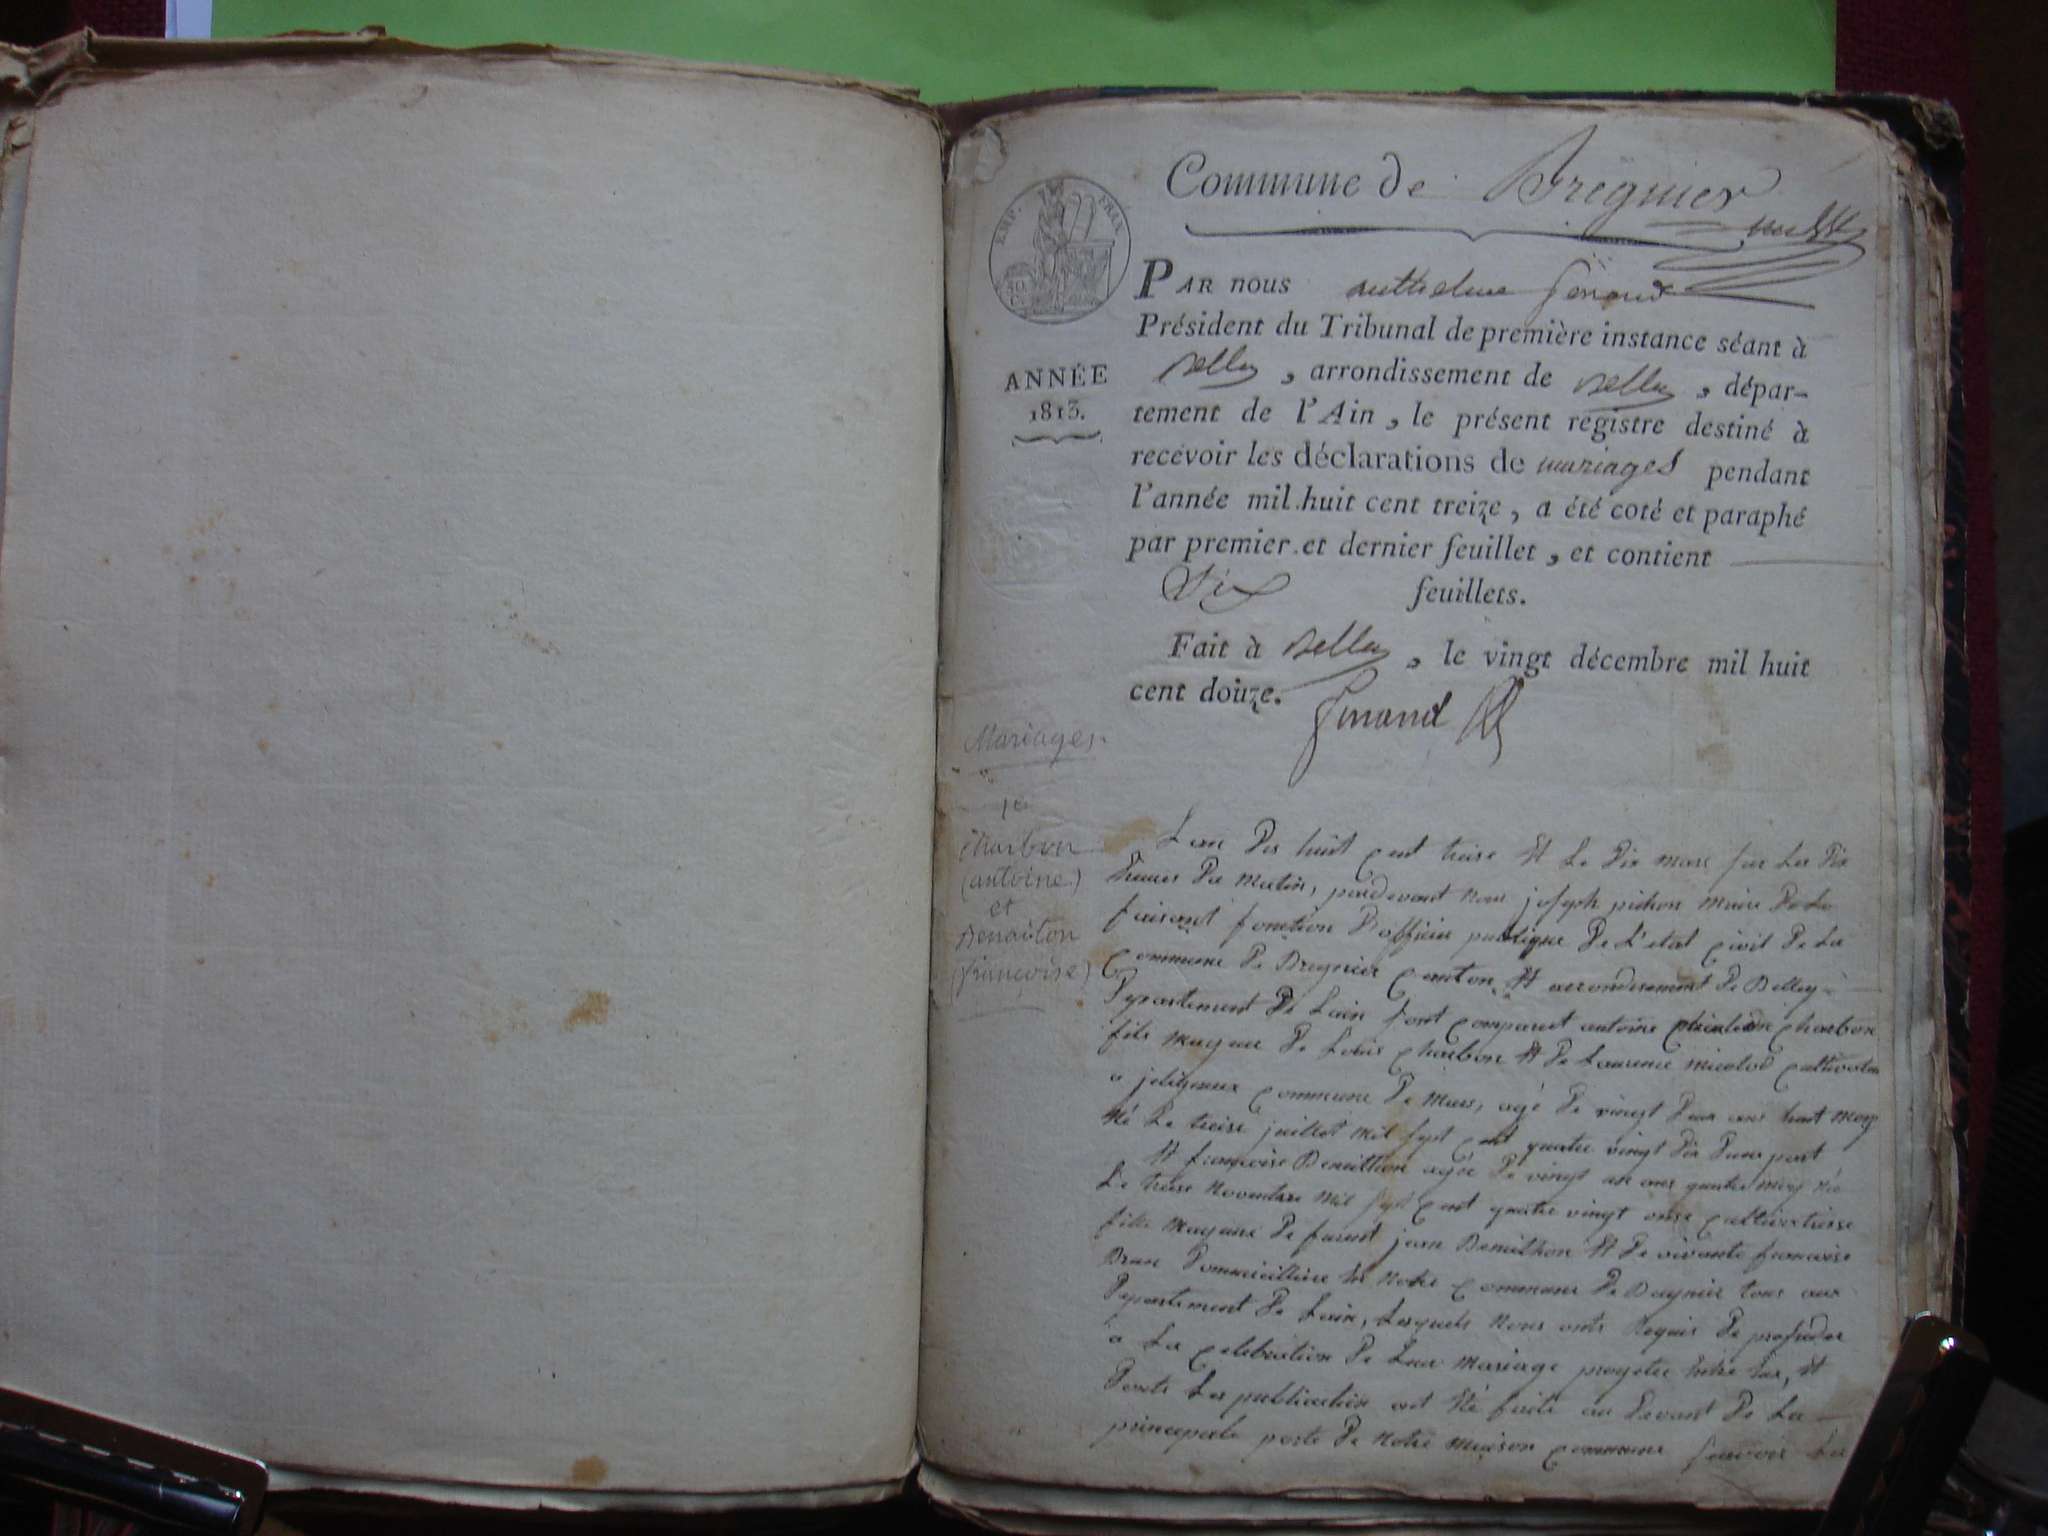 Commune de Bregnier
EMP. FRAN.
40
C.
PAR nous anthelme Genand
Président du Tribunal de première instance séant à
Belley, arrondissement de Belley, dépar-
tement de l'Ain, le présent registre destiné à
recevoir les déclarations de mariages pendant
l'année mil huit cent treize, a été coté et paraphé
par premier et dernier feuillet, et contient
Six feuillets.
Fait à Belley, le vingt décembre mil huit
cent douze.
ANNÉE
1813.
Mariages.
1er
Charbon
(antoine)
et
Benoiton
(françoise)
L'an huit cent treise et le dix mars sur les dix
heures du matin, pardevant nous joseph pichon maire de la
faisant fonction d'officier publique de l'etat civil de la
commune de Bregnier canton et arrondisement de Belley
Departement de Lain sont comparut antoine charbon
fils mageur de Louis charbon et de Laurence micolod cultivateur
a commune de murs, agé de vingt deux ans huit moy
né le treise juillet mil sept cent quatre vingt dix d'une part
et françoise Benoitthon agée de vingt un ans quatre moy né
le treise novembre mil sept cent quatre vingt onse cultivatrisse
fille mageure de jean Benoitthon et de vivante francoise
Brun notre commune de Bregnier tous aux
Departement de Lain, lesquels nous onts requis de proseder
a la celebration de leur mariage projetée entre eux, et
donts les publication ont été faite au devant de la
principale porte de notre maison commune scavoir la